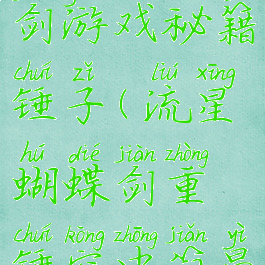 剑游戏秘籍
chuí zǐ liú xīng
锤子(流星
hú dié jiàn zhòng
蝴蝶剑重
chuí kōng zhōng jiǎn yì
锤空中简易